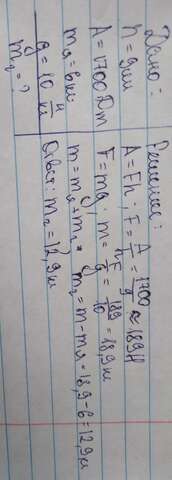 Дано:
h = 9м
A = 1700 Дж
mя = 6 кг
g = 10 Н/кг
m2 = ?
Решение:
A = Fh; F = A/h = 1700/9 ≈ 189 Н
F = mg; m = F/g = 189/10 = 18,9 кг
m = mя + m2 m2 = m - mя = 18,9 - 6 = 12,9 кг
Ответ: m2 = 12,9 кг